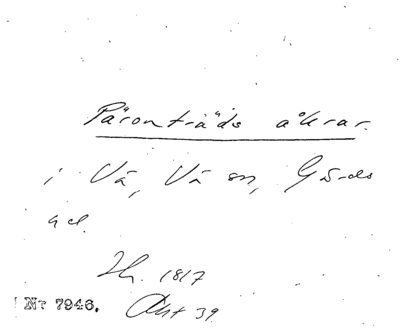 Päronträds åkrar.
i Vä, Vä sn, Gärds
hd.
Sk. 1817
Nr 7946. Akt 39